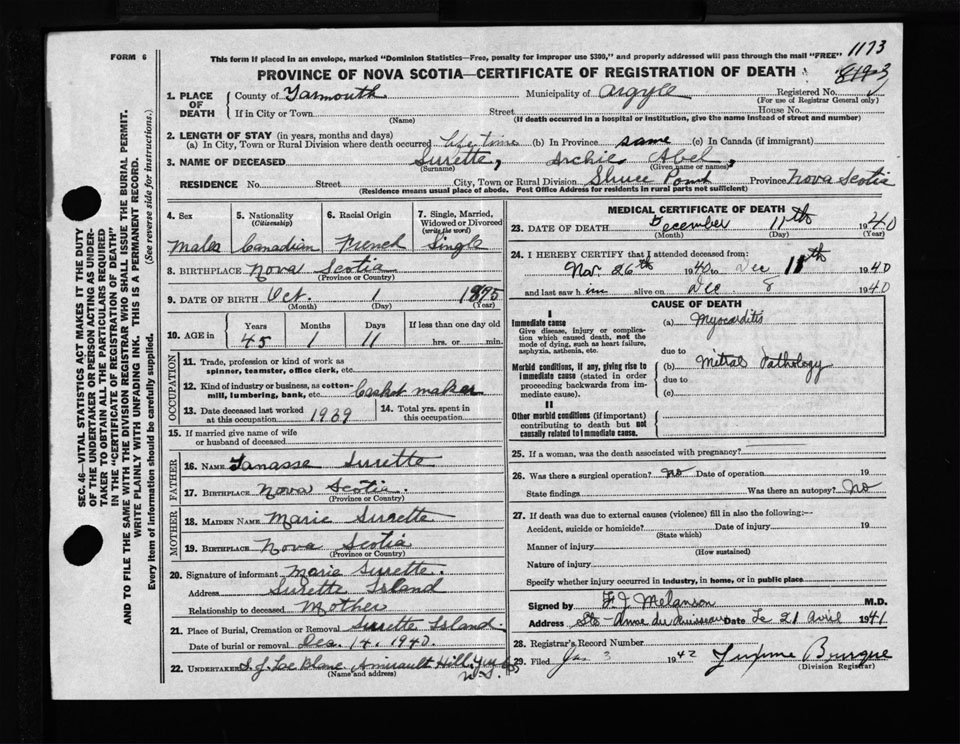 1173
FORM 6
This form if placed in an envelope, marked "Dominion Statistics—Free, penalty for improper use $300," and properly addressed will pass through the mail "FREE"
PROVINCE OF NOVA SCOTIA—CERTIFICATE OF REGISTRATION OF DEATH
1. PLACE OF DEATH
County of Yarmouth Municipality of Argyle Registered No.
(For use of Registrar General only)
If in City or Town Street House No.
(Name) (If death occurred in a hospital or institution, give the name instead of street and number)
2. LENGTH OF STAY (in years, months and days)
(a) In City, Town or Rural Division where death occurred life time (b) In Province same (c) In Canada (if immigrant)
3. NAME OF DECEASED Surette, Archie Abel,
(Surname) (Given name or names)
RESIDENCE No. Street City, Town or Rural Division Sluice Pond Province Nova Scotia
(Residence means usual place of abode. Post Office Address for residents in rural parts not sufficient)
4. Sex Male
5. Nationality (Citizenship) Canadian
6. Racial Origin French
7. Single, Married, Widowed or Divorced (write the word) Single
8. BIRTHPLACE Nova Scotia
(Province or Country)
9. DATE OF BIRTH Oct. 1 1895
(Month) (Day) (Year)
10. AGE in Years Months Days If less than one day old
45 1 11 hrs. or min.
OCCUPATION
11. Trade, profession or kind of work as spinner, teamster, office clerk, etc.
12. Kind of industry or business, as cotton-mill, lumbering, bank, etc. Casket maker
13. Date deceased last worked at this occupation 1939
14. Total yrs. spent in this occupation
15. If married give name of wife or husband of deceased
FATHER
16. NAME Tanasse Surette
17. BIRTHPLACE Nova Scotia.
(Province or Country)
MOTHER
18. MAIDEN NAME Marie Surette
19. BIRTHPLACE Nova Scotia
(Province or Country)
20. Signature of informant Marie Surette.
Address Surette Island
Relationship to deceased Mother
21. Place of Burial, Cremation or Removal Surette Island.
Date of burial or removal Dec. 14. 1940.
22. UNDERTAKER S. J. Lee Blanc Amirault Hill, Yar. Co. N.S.
(Name and address)
MEDICAL CERTIFICATE OF DEATH
23. DATE OF DEATH December 11th 1940
(Month) (Day) (Year)
24. I HEREBY CERTIFY that I attended deceased from:
Nov. 26th 1940 to Dec 11th 1940
and last saw h im alive on Dec. 8 1940
CAUSE OF DEATH
I
Immediate cause
Give disease, injury or complication which caused death, not the mode of dying, such as heart failure, asphyxia, asthenia, etc.
(a) Myocarditis
due to
Morbid conditions, if any, giving rise to immediate cause (stated in order proceeding backwards from immediate cause)
(b) Mitral Pathology
due to
(c)
II
Other morbid conditions (if important) contributing to death but not causally related to immediate cause.
25. If a woman, was the death associated with pregnancy?
26. Was there a surgical operation? No Date of operation 19
State findings Was there an autopsy? No
27. If death was due to external causes (violence) fill in also the following:—
Accident, suicide or homicide? Date of injury 19
(State which)
Manner of injury
(How sustained)
Nature of injury
Specify whether injury occurred in industry, in home, or in public place
Signed by F J Melanson M.D.
Address Ste-Anne du Ruisseau Date Le 21 Avril 1941
28. Registrar's Record Number
29. Filed Jan 3 1942
(Division Registrar)
SEC. 46—VITAL STATISTICS ACT MAKES IT THE DUTY
OF THE UNDERTAKER OR PERSON ACTING AS UNDERTAKER
TO OBTAIN ALL THE PARTICULARS REQUIRED
IN THE "CERTIFICATE OF REGISTRATION OF DEATH"
AND TO FILE THE SAME WITH THE DIVISION REGISTRAR WHO SHALL ISSUE THE BURIAL PERMIT.
WRITE PLAINLY WITH UNFADING INK. THIS IS A PERMANENT RECORD.
Every item of information should be carefully supplied. (See reverse side for instructions.)